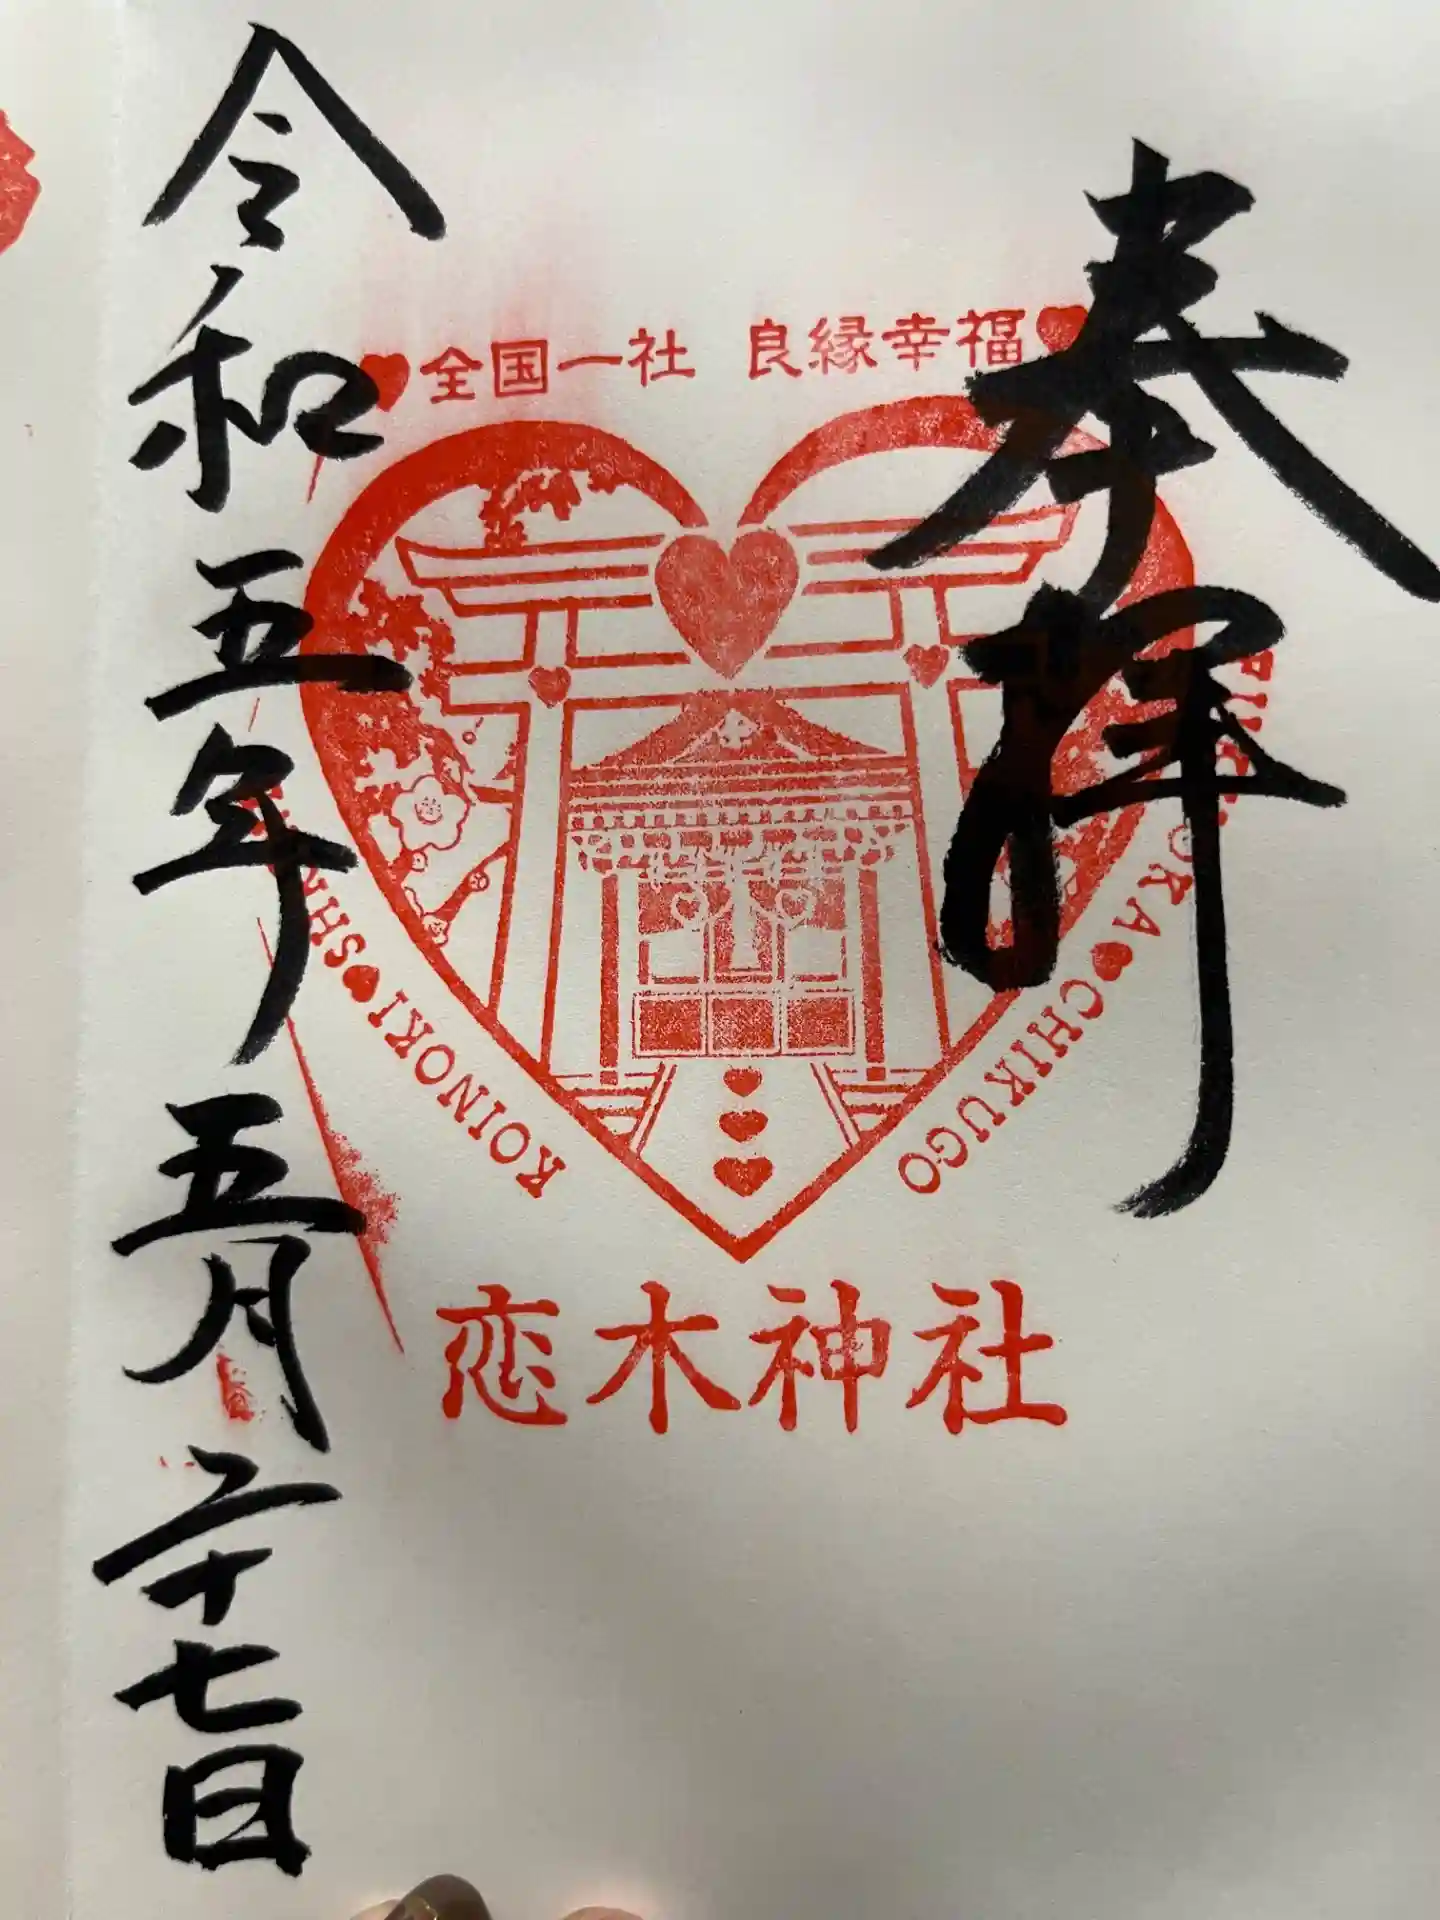 奉拝
全国一社 良縁幸福
KOINOKI
CHIKUGO
恋木神社
令和五年五月二十七日